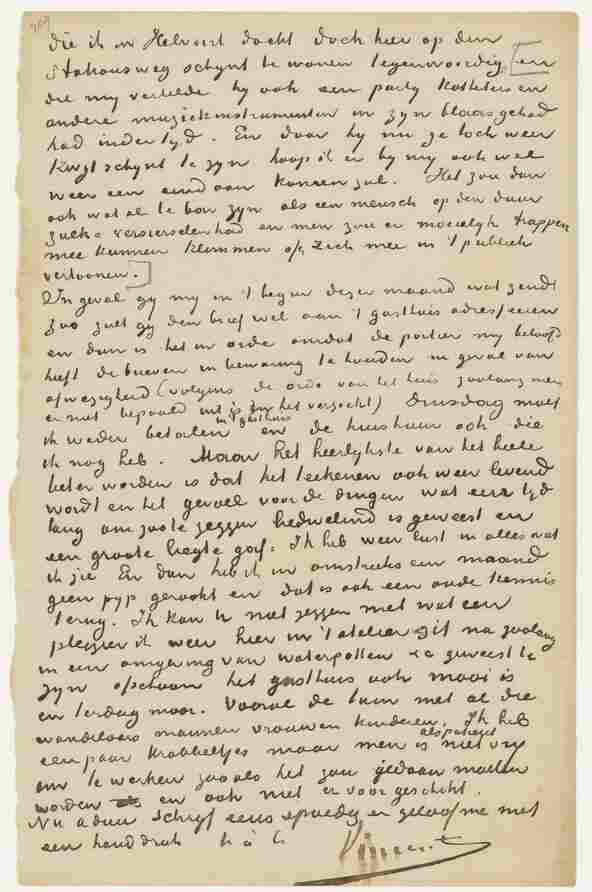 die ik in Helvoirt dacht doch hier op den
Stationsweg schynt te wonen tegenwoordig [en
die my vertelde hy ook een party katheters en
andere muziekinstrumenten in zyn blaas gehad
had indertyd. En daar hy nu ze toch weer
kwyt schynt te zyn hoop ik er by my ook wel
weer een eind aan komen zal. Het zou dan
ook wat al te bon zyn als een mensch op den duur
zulke versierselen had en men zou er moeielyk trappen
mee kunnen klimmen of zich mee in 't publiek
vertoonen.]
In geval gy my in 't begin dezer maand wat zendt
zoo zult gy den brief wel aan 't gasthuis adresseeren
en dan is het in orde omdat de portier my beloofd
heeft de brieven in bewaring te houden in geval van
afwezigheid (volgens de orde van het huis zoolang men
er niet bepaald uit is het verzoekt) Dinsdag moet
ik weder betalen in 't gasthuis en de huishuur ook die
ik nog heb. Maar het heerlykste van het heele
beter worden is dat het teekenen ook weer levend
wordt en het gevoel voor de dingen wat een tyd
lang om zoo te zeggen bedwelmd is geweest en
een groote leegte gaf. Ik heb weer lust in alles wat
ik zie En dan heb ik in omstreeks een maand
geen pyp gerookt en dat is ook een oude kennis
terug. Ik kan U niet zeggen met wat een
pleizier ik weer hier in 't atelier zit na zoolang
in een omgeving van waterpotten &a geweest te
zyn ofschoon het gasthuis ook mooi is
en terdeg mooi. Vooral de tuin met al die
wandelaars mannen vrouwen kinderen. Ik heb
een paar krabbeltjes maar men is als patient niet vry
om te werken zooals het zou gedaan moeten
worden en ook niet er voor geschikt.
Nu adieu schryf eens spoedig en geloof me met
een handdruk t. à t.
Vincent